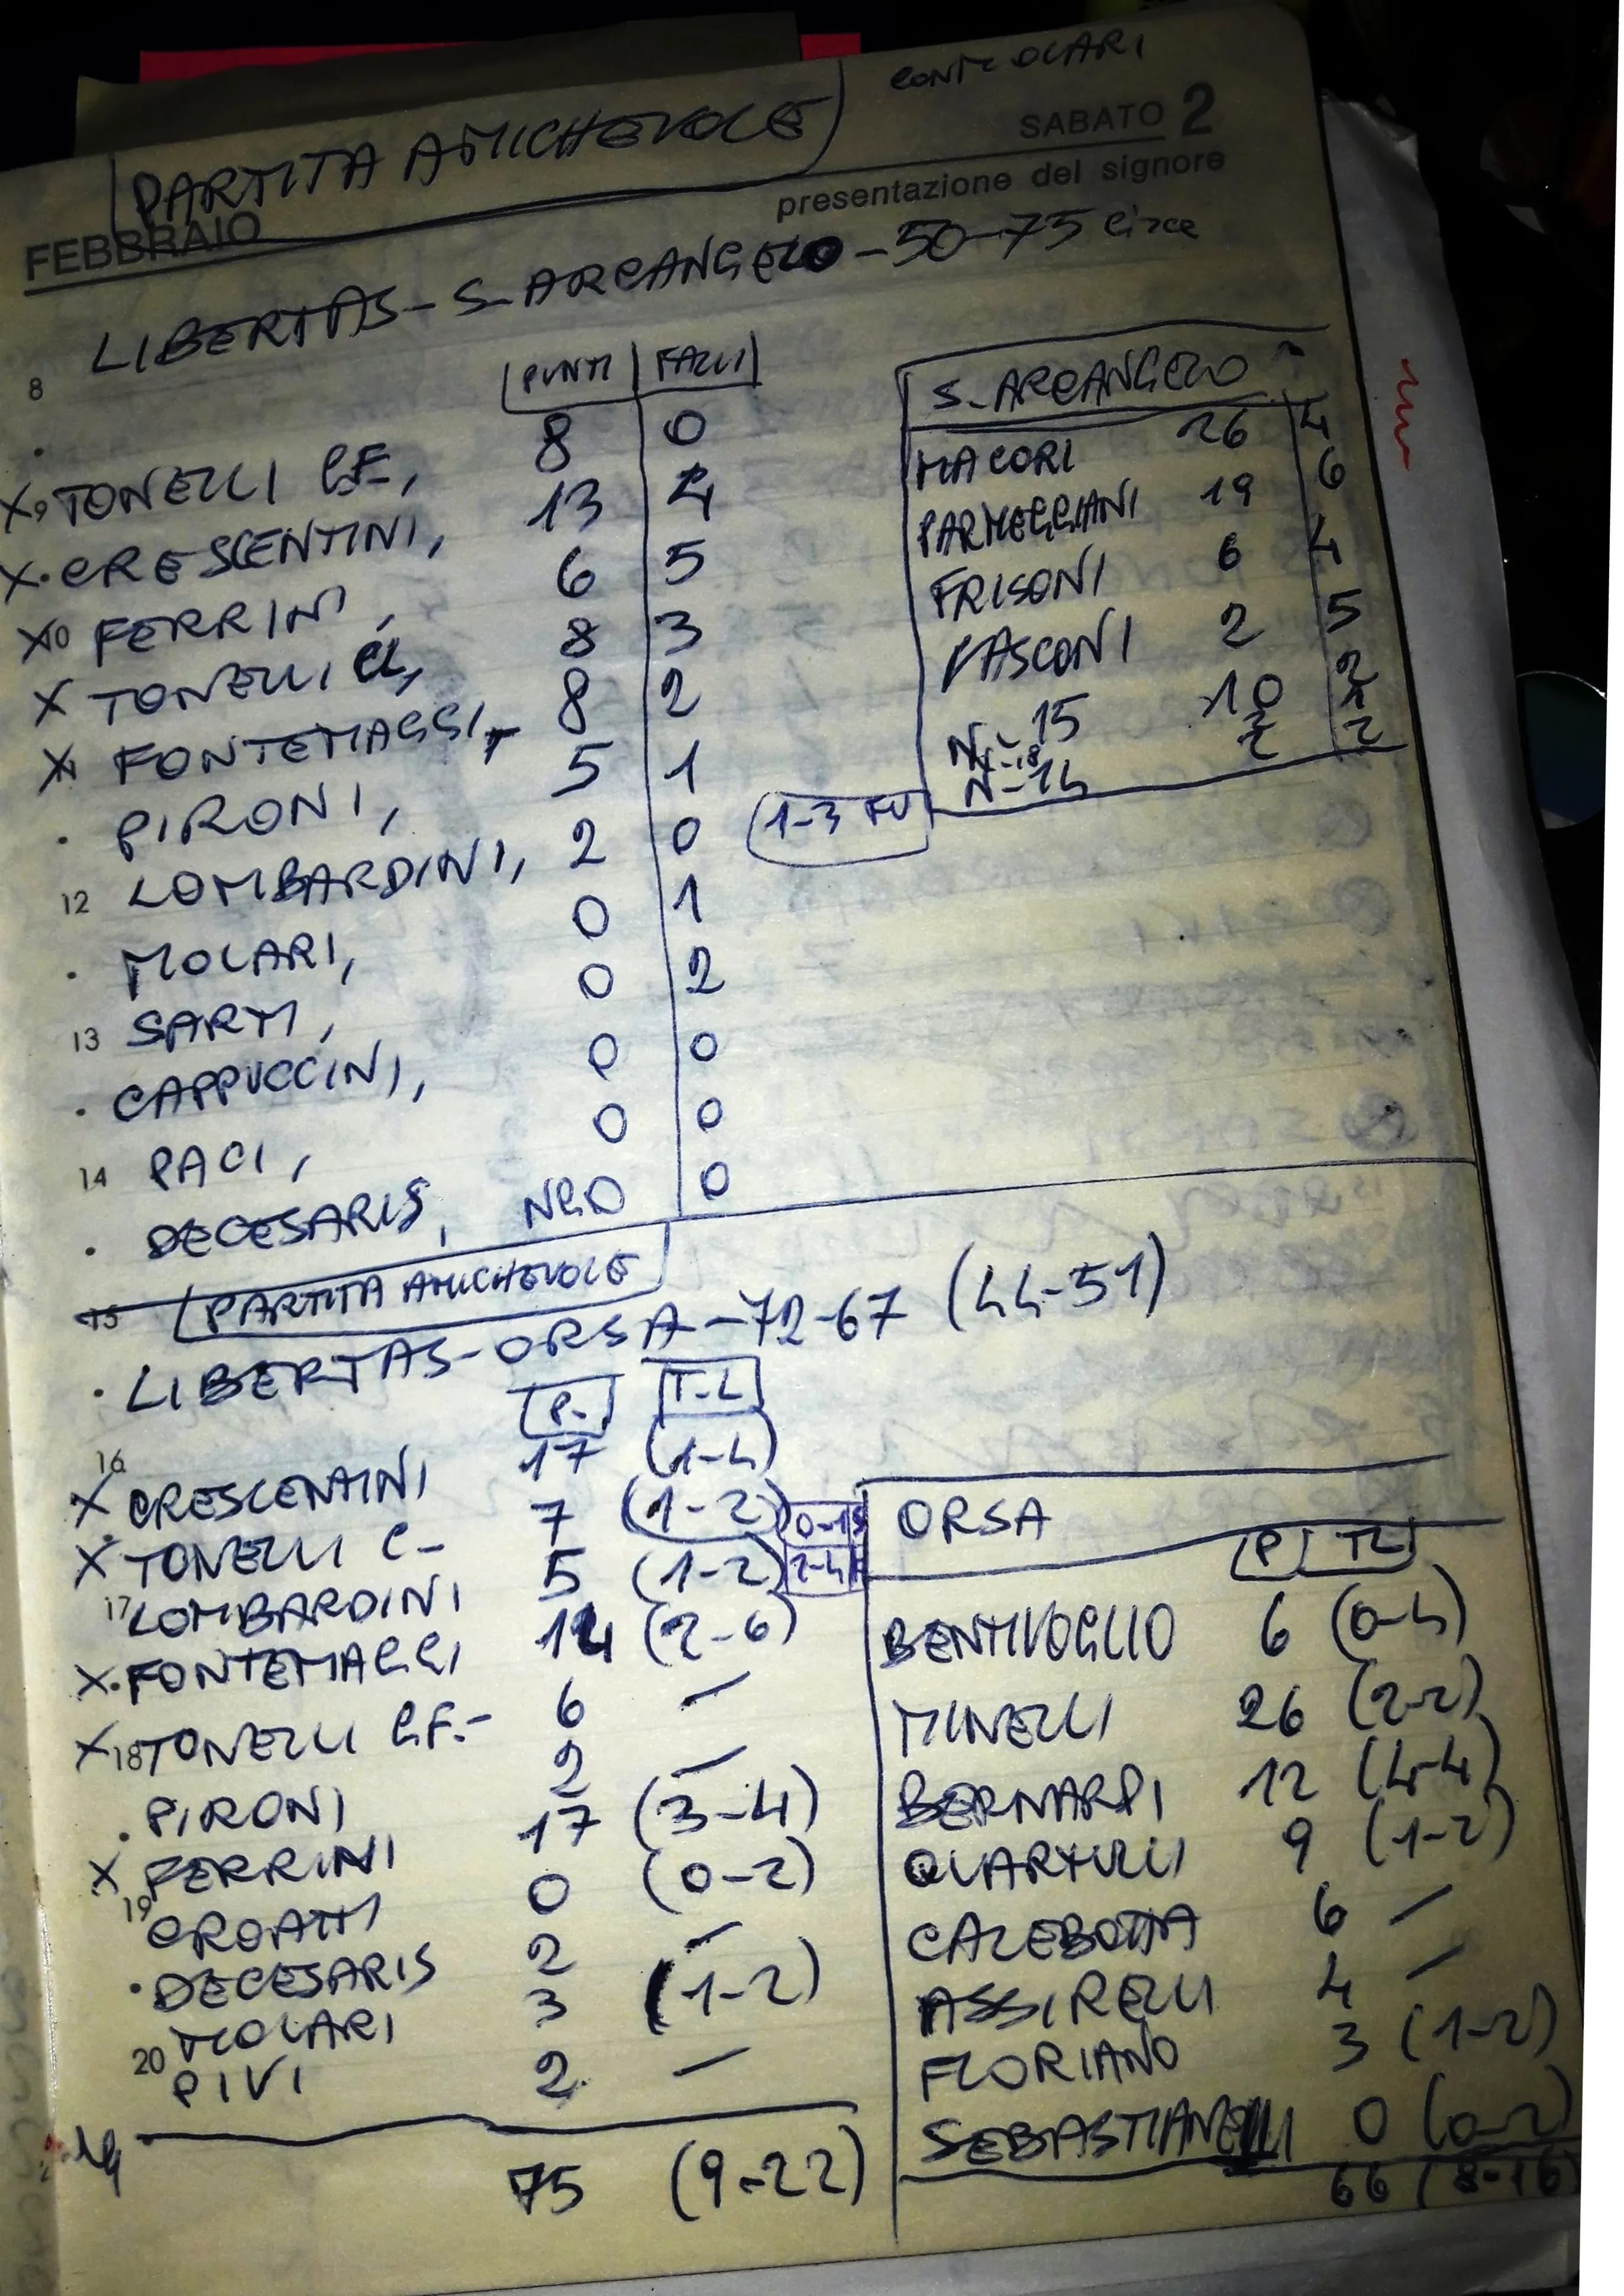 CONTR OLARI
PARTITA AMICHEVOLE
SABATO 2
FEBBRAIO
presentazione del signore
LIBERTAS - S. ARCANGELO - 50-75 circa
8
PUNTI FALLI
X 9 TONELLI G.F., 8 0
X CRESCENTINI, 13 4
X 10 FERRINI, 6 5
X TONELLI C., 8 3
X FONTEMAGGI, 8 2
PIRONI, 5 1
12 LOMBARDINI, 2 0
MOLARI, 0 1
13 SARTI, 0 2
CAPPUCCINI, 0 0
14 PACI, 0 0
DECESARIS, NGD 0
1-3 FU
S. ARCANGELO
MACORI 26 4
PARMEGGIANI 19 6
FRISONI 6 4
VASCONI 2 5
N. 15 10 2
N. 18 2
N. 14 2 2
15 PARTITA AMICHEVOLE
LIBERTAS - ORSA - 72-67 (44-51)
P. T.L
16
X CRESCENTINI 17 (1-4)
X TONELLI C. 7 (1-2) 0-1
17 LOMBARDINI 5 (1-2) 2-4
X FONTEMAGGI 14 (2-6)
X 18 TONELLI G.F. 6 —
PIRONI 2 —
X FERRINI 17 (3-4)
19 CROATTI 0 (0-2)
DECESARIS 2 —
20 MOLARI 3 (1-2)
PIVI 2 —
75 (9-22)
ORSA
P TL
BENTIVOGLIO 6 (0-4)
MINELLI 26 (2-2)
BERNARDI 12 (4-4)
QUARTULLI 9 (1-2)
CALEBOTTA 6 —
ASSIRELLI 4 —
FLORIANO 3 (1-2)
SEBASTIANELLI 0 (0-2)
66 (8-16)